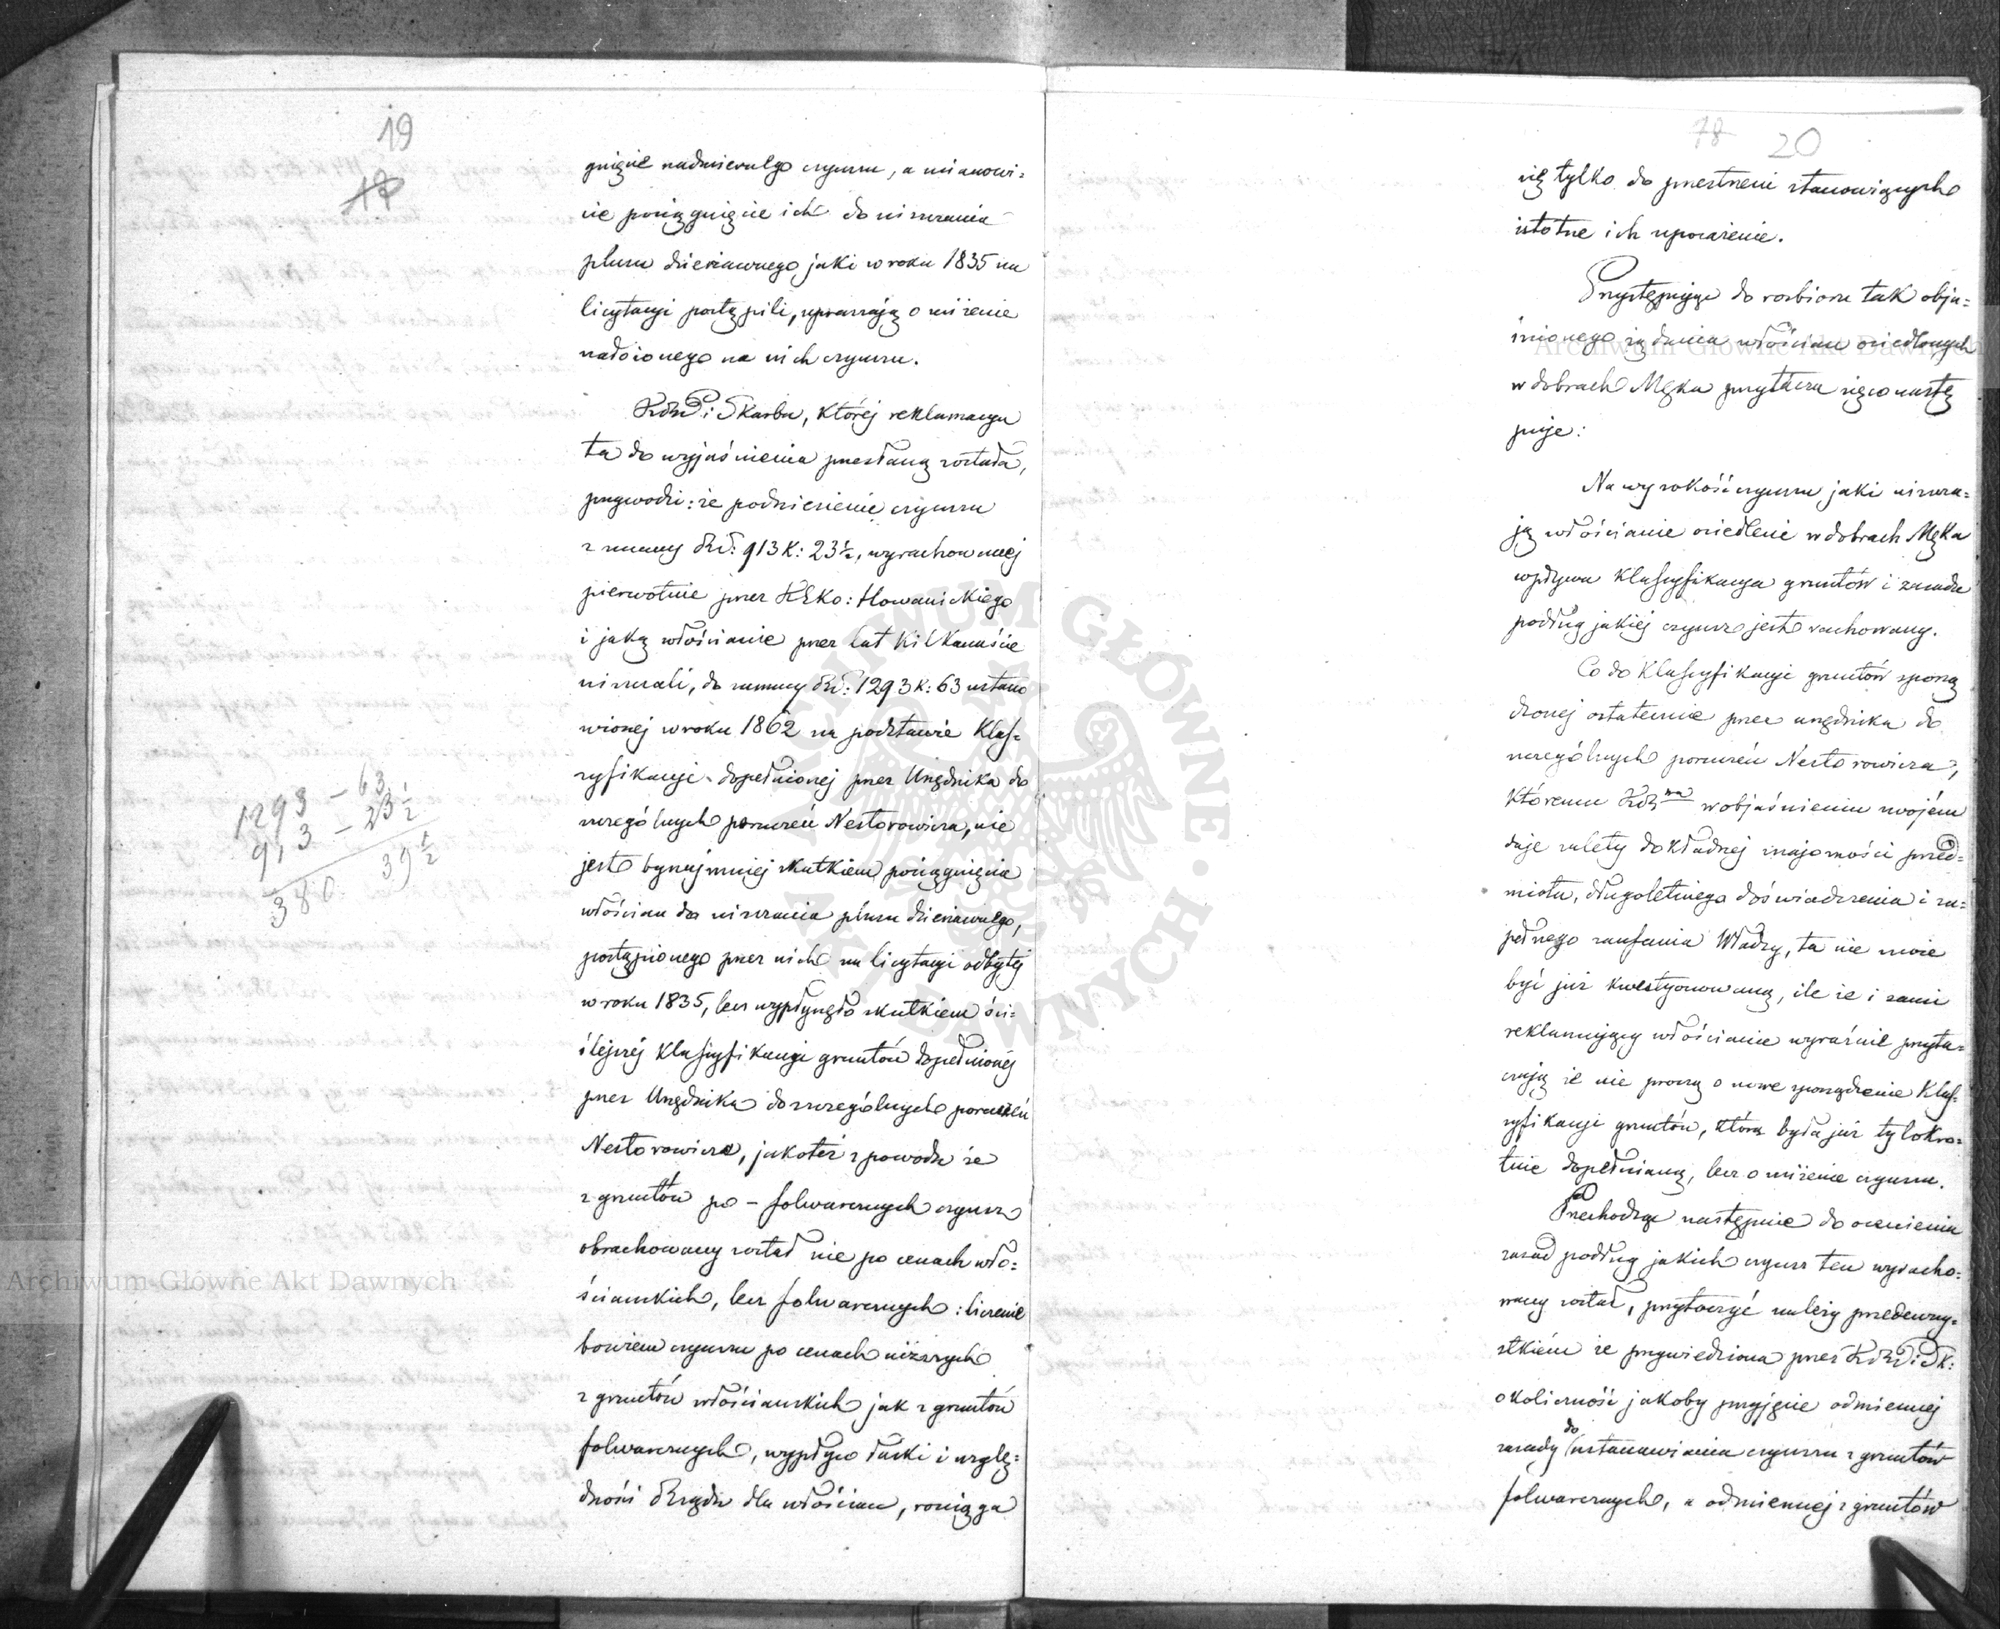 19
gnięcie nadmiernego czynszu, a mianowi=
cie pociągnięcie ich do uiszczania
plusu dzierżawnego, jaki w roku 1835 na
licytacyi postąpili, upraszają o zniżenie
nałożonego na nich czynszu.
i Skarbu, której reklamacya
ta do wyjaśnienia przesłaną została,
przywodzi: że podniesienie czynszu
z summy RS: 913 K: 23½, wyrachowanej
pierwotnie przez Słowanickiego
i jaką włościanie przez lat kilkanaście
uiszczali, do summy RS: 1293 K: 63 ustano
wionej w roku 1862 na podstawie Klas-
syfikacyi dopełnionej przez Urzędnika do
szczególnych poruczeń Nestorowicza, nie
jest bynajmniej skutkiem pociągnięcia
włościan do uiszczania plusu dzierżawnego,
postąpionego przez nich na licytacyi odbytej
w roku 1835, lecz wypłynęło skutkiem ści=
ślejszej klassyfikacyi gruntów dopełnionej
przez Urzędnika do szczególnych poruczeń
Nestorowicza, jakoteż z powodu że
z gruntów po-folwarcznych czynsz
obrachowany został nie po cenach wło=
ściańskich, lecz folwarcznych: liczenie
bowiem czynszu po cenach niższych
z gruntów włościańskich jak z gruntów
folwarcznych, wypływa z łaski i wzglę=
dności Rządu dla włościan, rozciąga
1293 - 63
913 - 23½
380. 39½
78 20
się tylko do przestrzeni stanowiących
istotne ich uposażenie.
Przystępując do rozbioru tak obja=
śnionego żądania włościan osiedlonych
w dobrach Męka przytacza się co nastę
puje:
Na wysokość czynszu, jaki uiszcza=
ją włościanie osiedleni w dobrach Męka
wpływa klassyfikacya gruntów i zasada
podług jakiej czynsz jest rachowany.
Co do klassyfikacyi gruntów sporzą
dzonej ostatecznie przez urzędnika do
szczególnych poruczeń Nestorowicza,
któremu w objaśnieniu swojém
daje zalety dokładnej znajomości przed=
miotu, długoletniego doświadczenia i zu=
pełnego zaufania Władzy, ta nie może
być już kwestyonowaną, ile że i sami
reklamujący włościanie wyraźnie przyta=
czają że nie proszą o nowe sporządzenie Klas-
syfikacyi gruntów, która była już tylokro=
tnie dopełnianą, lecz o zniżenie czynszu.
Przechodząc następnie do ocenienia
zasad podług jakich czynsz ten wyracho=
wany został, przytoczyć należy przedewszy=
stkiém że przywiedziona przez i Sk:
okoliczność jakoby przyjęcie odmiennej
zasady do ustanawiania czynszu z gruntów
folwarcznych, a odmiennej z gruntów